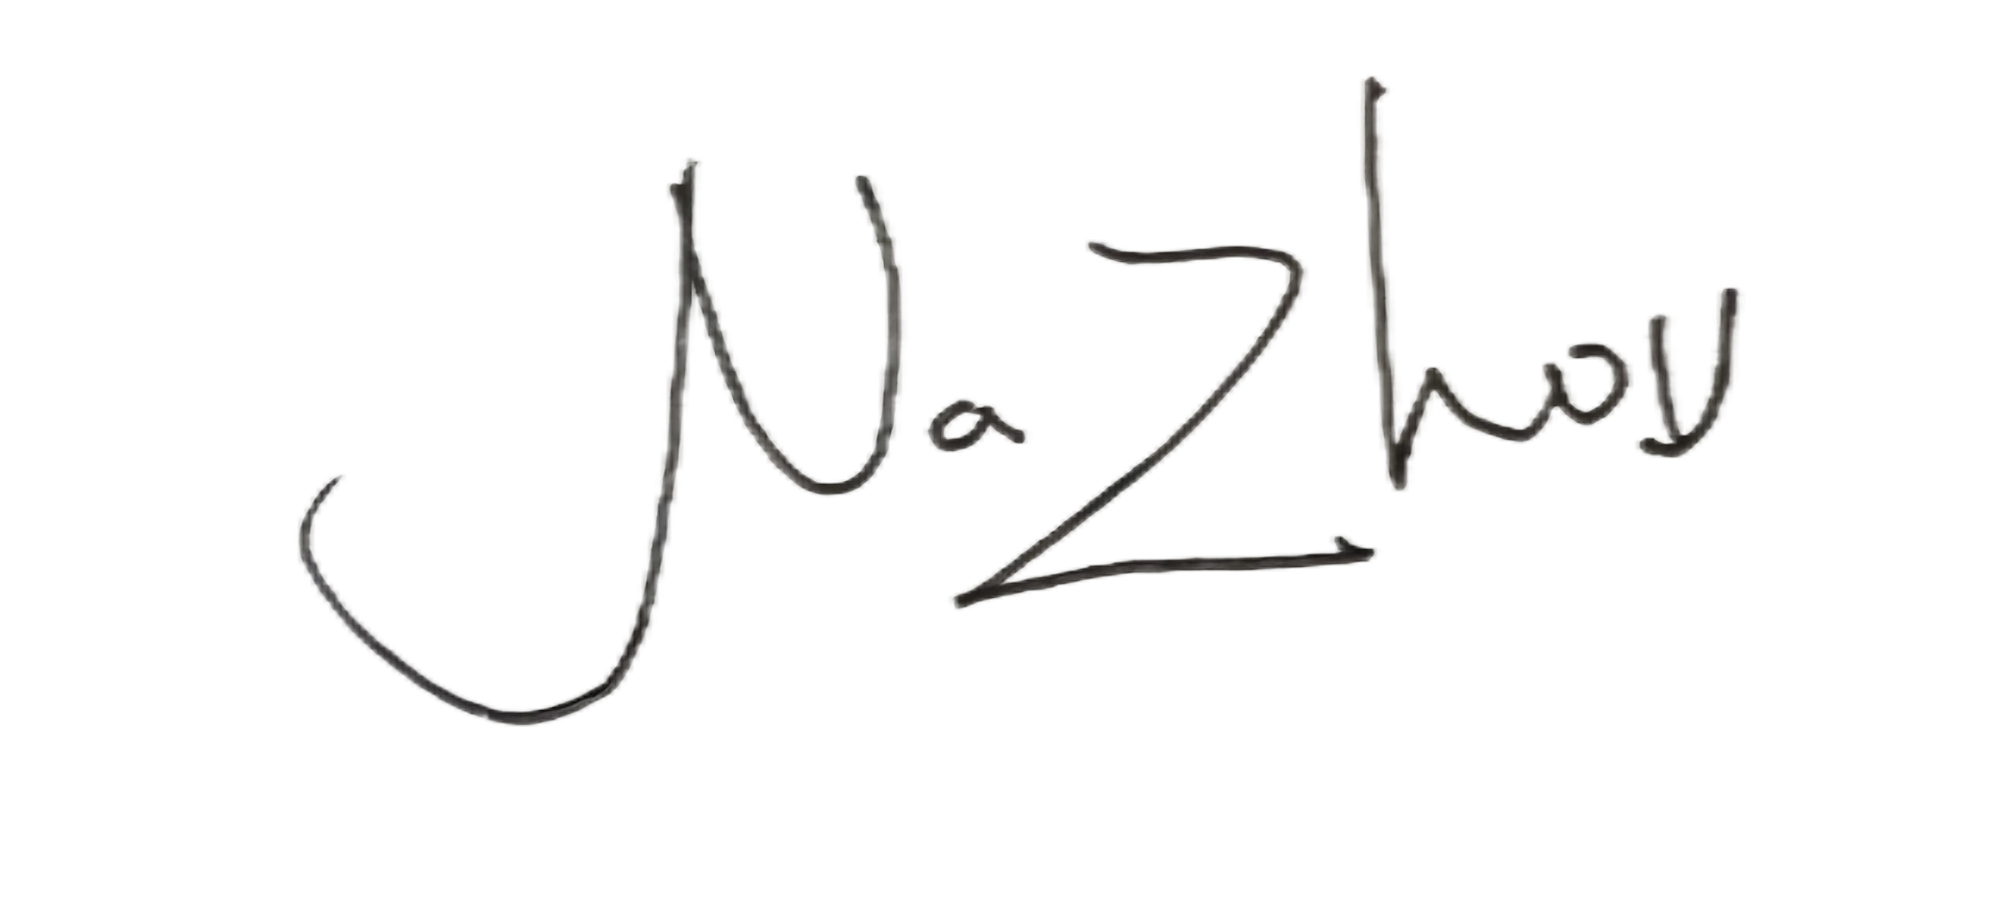 Na Zhou